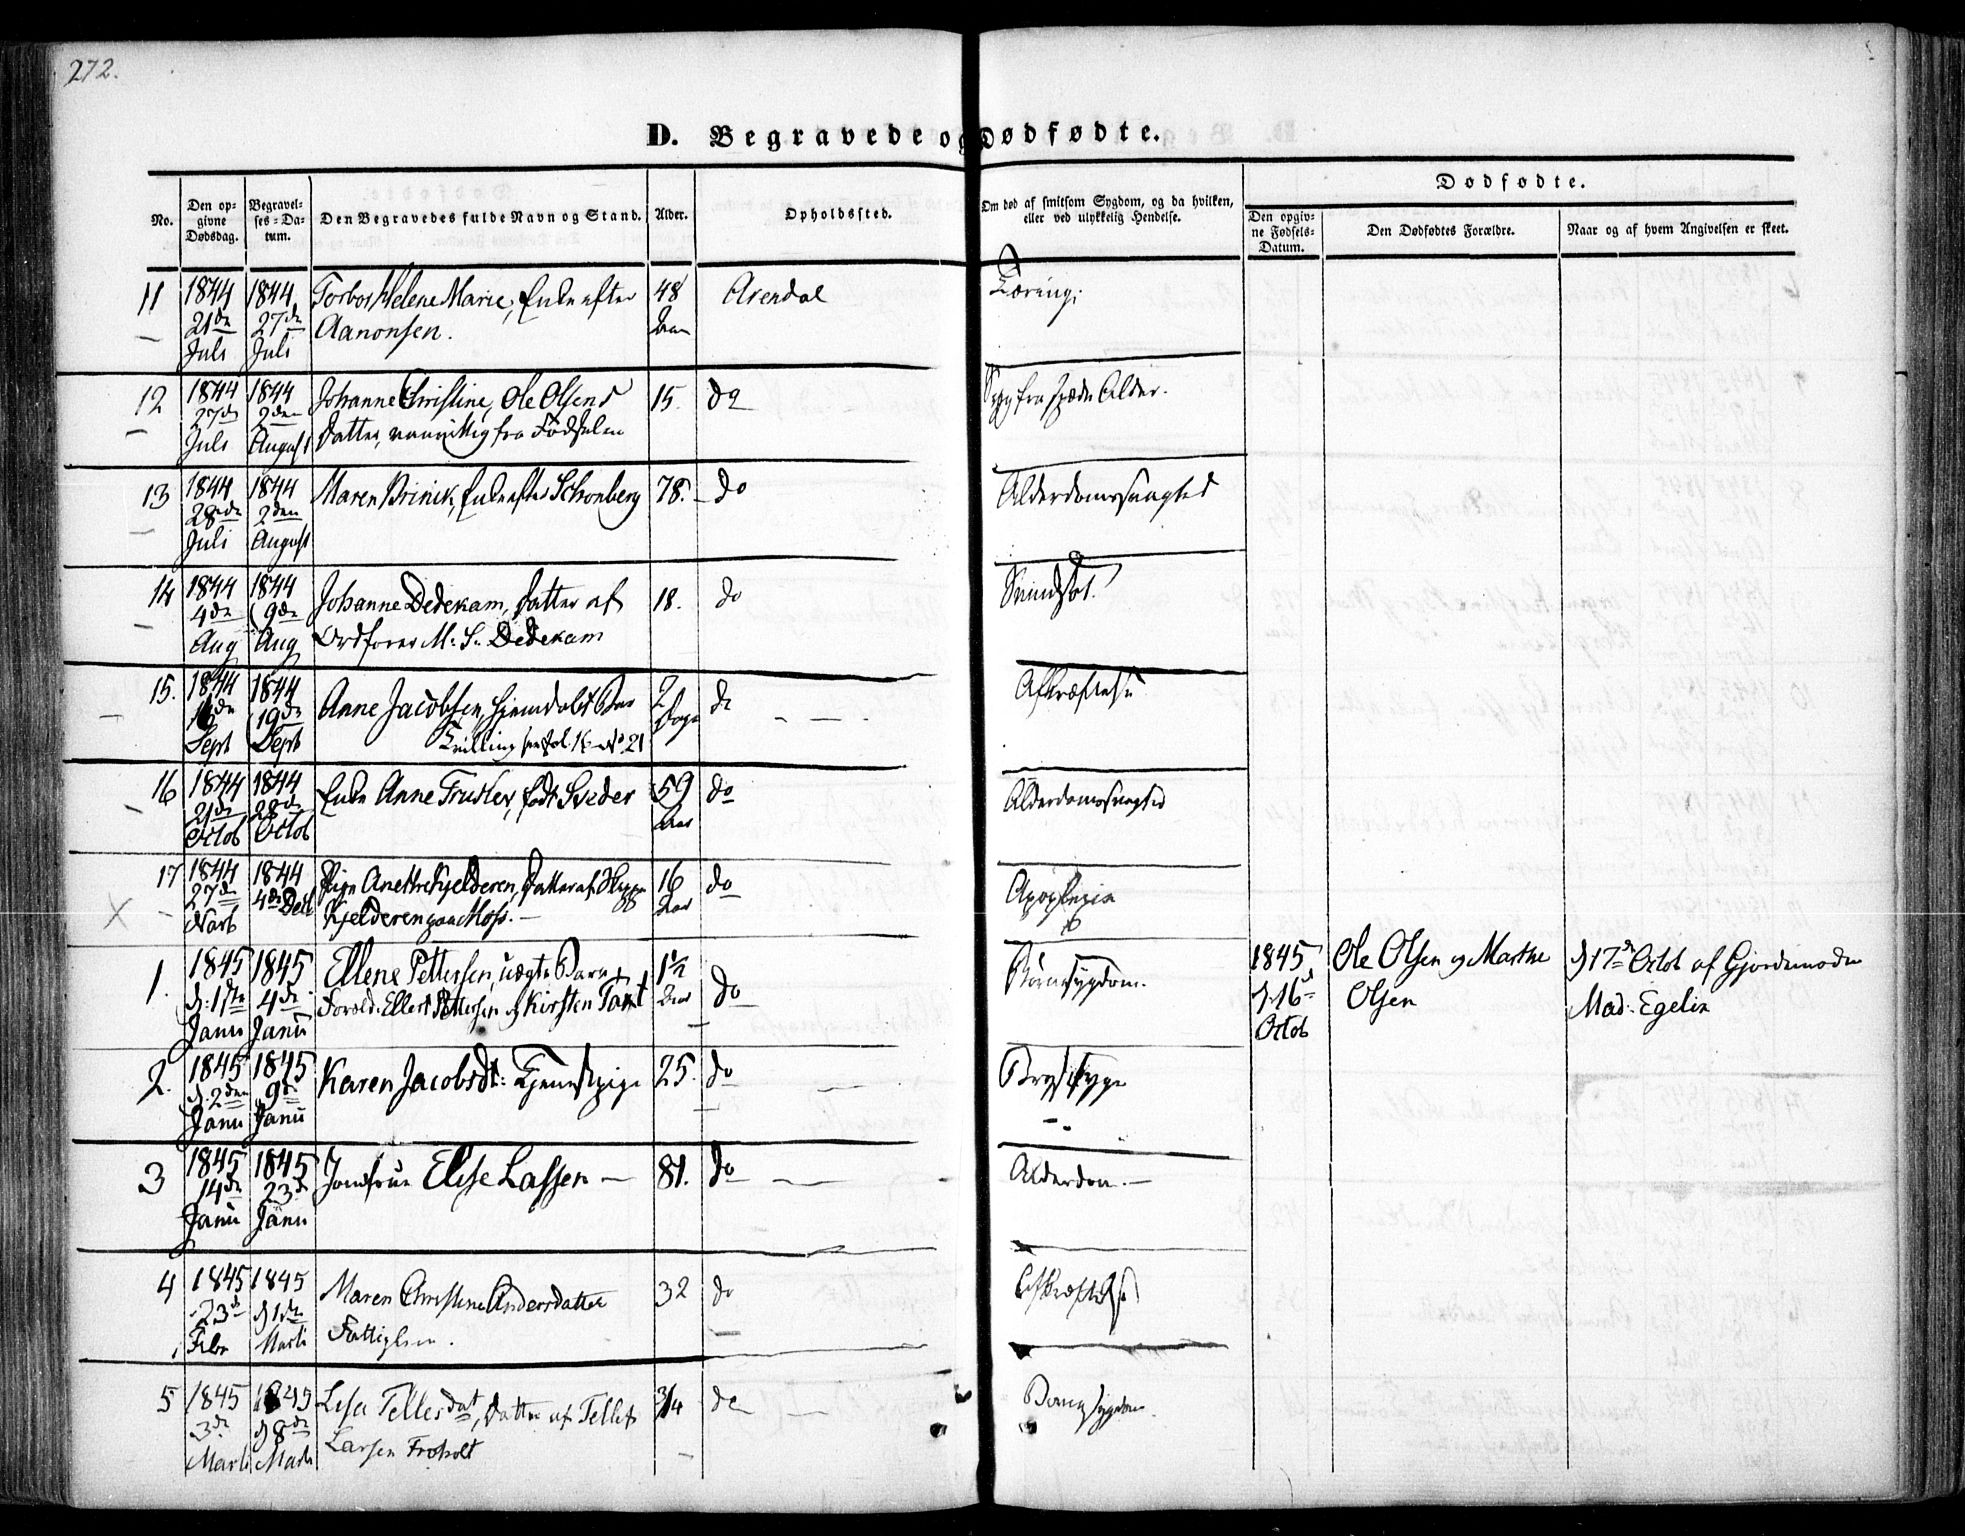 272.
D. Begravede og Dødfødte.
No.
Den op-
givne
Dødsdag.
Begravel-
ses-Da-
tum.
Den Begravedes fulde Navn og Stand.
Alder.
Opholdssted.
Om død af smitsom Sygdom, og da hvilken,
eller ved ulykkelig Hendelse.
Dødfødte.
Den opgiv-
ne Fødsels-
Datum.
Den Dødfødtes Forældre.
Naar og af hvem Angivelsen er skeet.
11 1844 1844 Torbor Helene Marie, Enke efter 48 Arendal Tæring
21de 27de Aanonsen.
Juli Juli
12 1844 1844 Johanne Christine, Ole Olsens 15. do Syg fra spæde Alder.
27de 2den Datter, vanvittig fra Fødselen
Juli August
13 1844 1844 Maren Brinck, Enke efter Schonberg 78. do Alderdomssvaghed
28de 2den
Juli August
14 1844 1844 Johanne Dedekam, Datter af 18. do Svindsot.
4de 9de Ordfører M. S. Dedekam
Aug Aug
15. 1844 1844 Anne Jacobsen, hjemdøbt Barn 2 do Afkræftelse
16de 19de Tvilling No. 21 Dage
Sept Sept
16 1844 1844 Enke Anne født 59 do Alderdomssvaghed
21de 28de Aar
Octob Octob
17 1844 1844 Pige Anethe Kjelderen, Datter af 16 do Apoplexia
27de 4de Dec Kjelderen paa Moss. Aar
Novb
1. 1845 1845 Ellene Pettersen, uægte Barn 1½ do Børnesygdom. 1845 Ole Olsen og Marthe d 17de Octob af Gjordemoder
d. 1ste 4de Foræld: Ellert Pettersen og Kirsten Aar d. 16d Olsen Mad. Egelie
Janu Janu Octob
2. 1845 1845 Karen Jacobsdt: Tjenestepige 25. do Brystsyge
d. 2den 9de
Janu Janu
3 1845 1845 Jomfrue Elise Lassen 81. do Alderdom.
14de 23d
Janu Janu
4 1845 1845 Maren Christine Andersdatter 32 do Afkræftelse
23d d 1ste Fattiglem.
Febr Marti
5 1845 1845 Lisa Tellesdat, Datter af Tellef 3/4 do Barnesygdom.
3de d 8de Larsen Froholt
Marti Marti